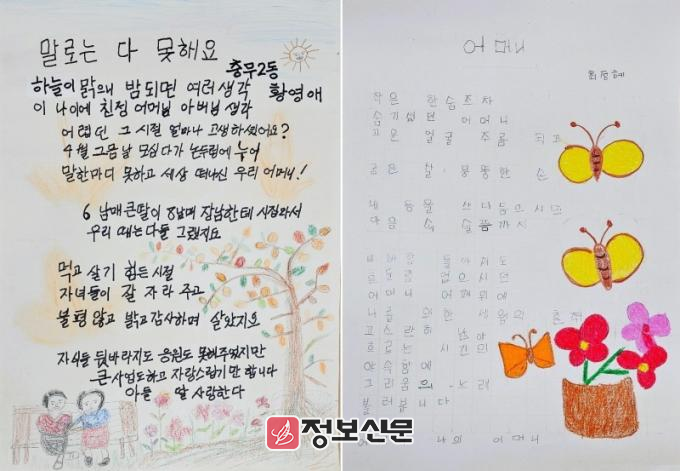 말로는 다 못해요
충무2동
황영애
하늘이 맑으니 밤되면 여러생각
이 나이에 친정 어머님 아버님 생각
어렵던 그 시절 얼마나 고생하셨어요?
4월 그믐날 모심다가 논두렁에 누어
말한마디 못하고 세상 떠나신 우리 어머니!
6 남매 큰딸이 8남매 장남한테 시집와서
우리 때는 다들 그랬지요
먹고 살기 힘든 시절
자녀들이 잘 자라 주고
불평 않고 밝고 감사하며 살았지요
자식들 뒷바라지도 응원도 못해주었지만
큰사업도하고 자랑스럽기만 합니다
아들 딸 사랑한다
어머니
작은 한숨조차
숨기셨던 어머니
고은 얼굴 주름 되고
굽은 손
쓰다듬으시던
마음 속 슬픔까지
어머니
세월의
고스란히 남아
흐르는 시간의
야속함에
그리움의 노래
불러봅니다
나의 어머니
정보신문